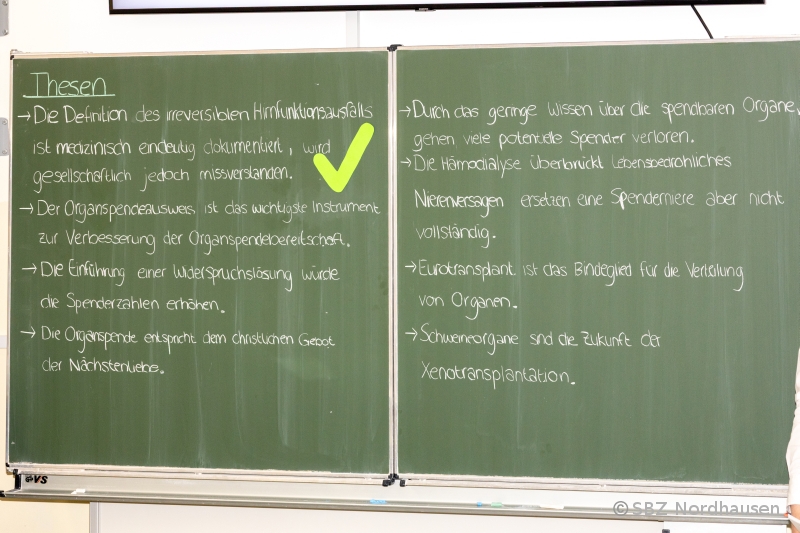 Thesen
→ Die Definition des irreversiblen Hirnfunktionsausfalls
ist medizinisch eindeutig dokumentiert, wird
gesellschaftlich jedoch missverstanden.
→ Der Organspendeausweis ist das wichtigste Instrument
zur Verbesserung der Organspendebereitschaft.
→ Die Einführung einer Widerspruchslösung würde
die Spenderzahlen erhöhen.
→ Die Organspende entspricht dem christlichen Gebot
der Nächstenliebe.
→ Durch das geringe Wissen über die spendbaren Organe,
gehen viele potentielle Spender verloren.
→ Die Hämodialyse überbrückt lebensbedrohliches
Nierenversagen ersetzen eine Spenderniere aber nicht
vollständig.
→ Eurotransplant ist das Bindeglied für die Verteilung
von Organen.
→ Schweineorgane sind die Zukunft der
Xenotransplantation.
eVS
© SBZ Nordhausen